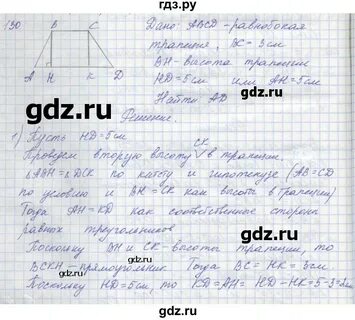 гдз.ру
130.
B C
A H K D
Дано: ABCD - равнобокая
трапеция, BC = 3 см
BH - высота трапеции
HD = 5 см или AH = 5 см
Найти AD
Решение.
1) Пусть HD = 5 см.
CK
Проведем вторую высоту V в трапеции.
△ABH = △DCK по катету и гипотенузе (AB = CD
по условию и BH = CK как высоты в трапеции)
Тогда AH = KD как соответственные стороны
равных треугольников
Поскольку BH и CK - высоты трапеции, то
BCKH - прямоугольник Тогда BC = HK = 3 см
Поскольку HD = 5 см, то KD = AH = HD - HK = 5 - 3 = 2 см
gdz.ru gdz.ru
gdz.ru gdz.ru
gdz.ru gdz.ru